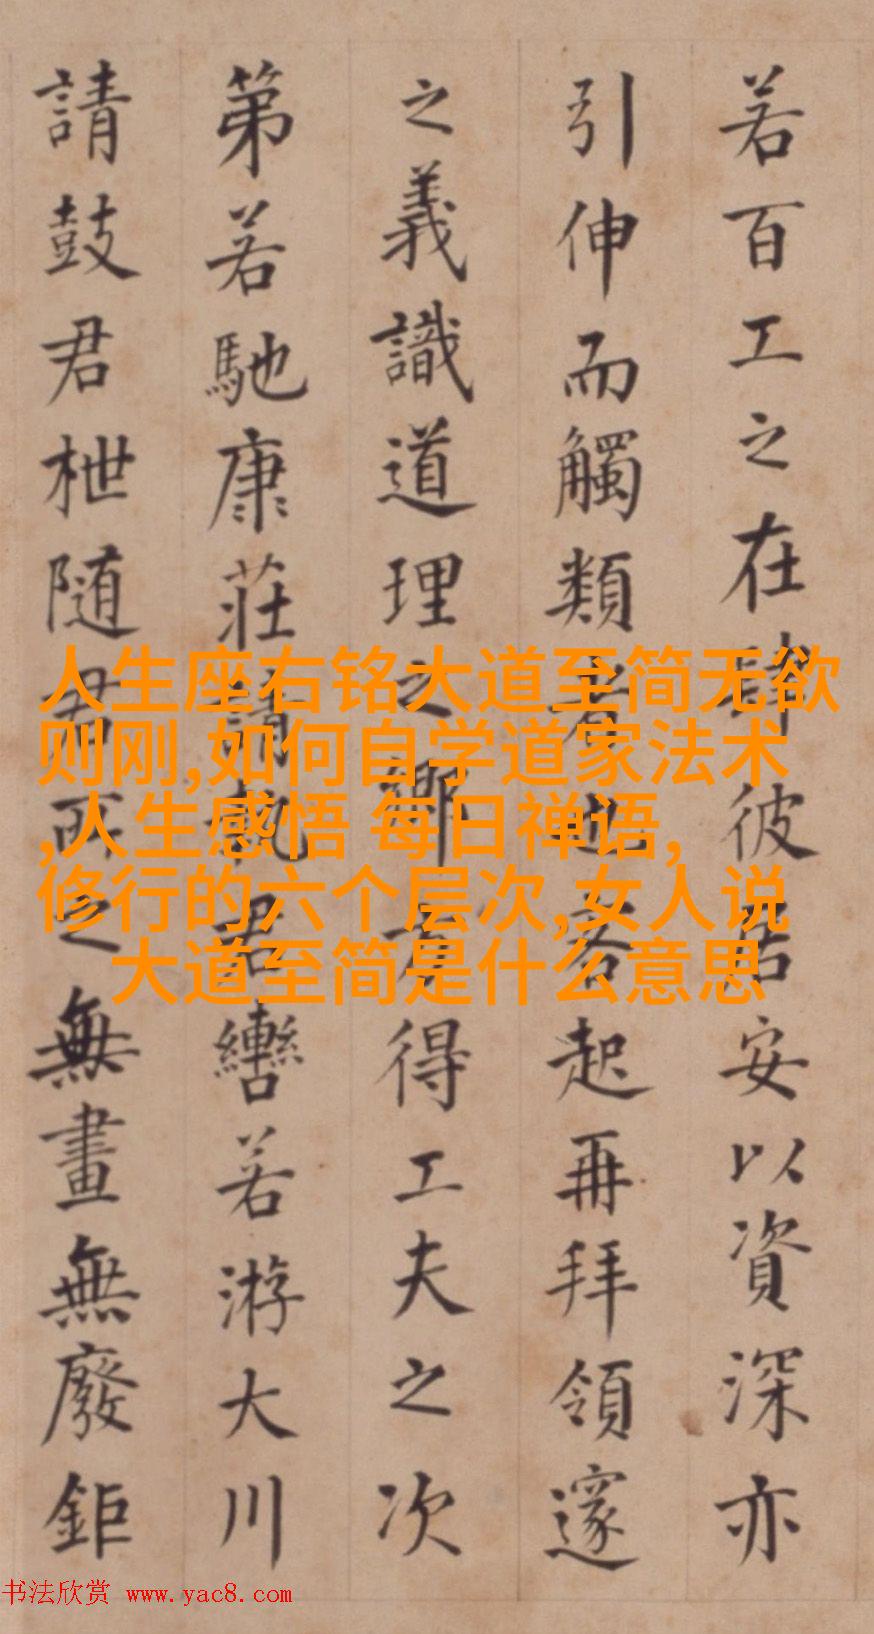 若百工之在肆彼居安以資深亦
引伸而觸類者也客起再拜領邃
之義識道理之鄉方得工夫之次
第若馳康莊請執君轡若游大川
請鼓君枻随君所之無畫無廢鉅
人生座右铭大道至简无欲
则刚,如何自学道家法术
,人生感悟 每日禅语,
修行的六个层次,女人说
大道至简是什么意思
书法欣赏 www.yac8.com